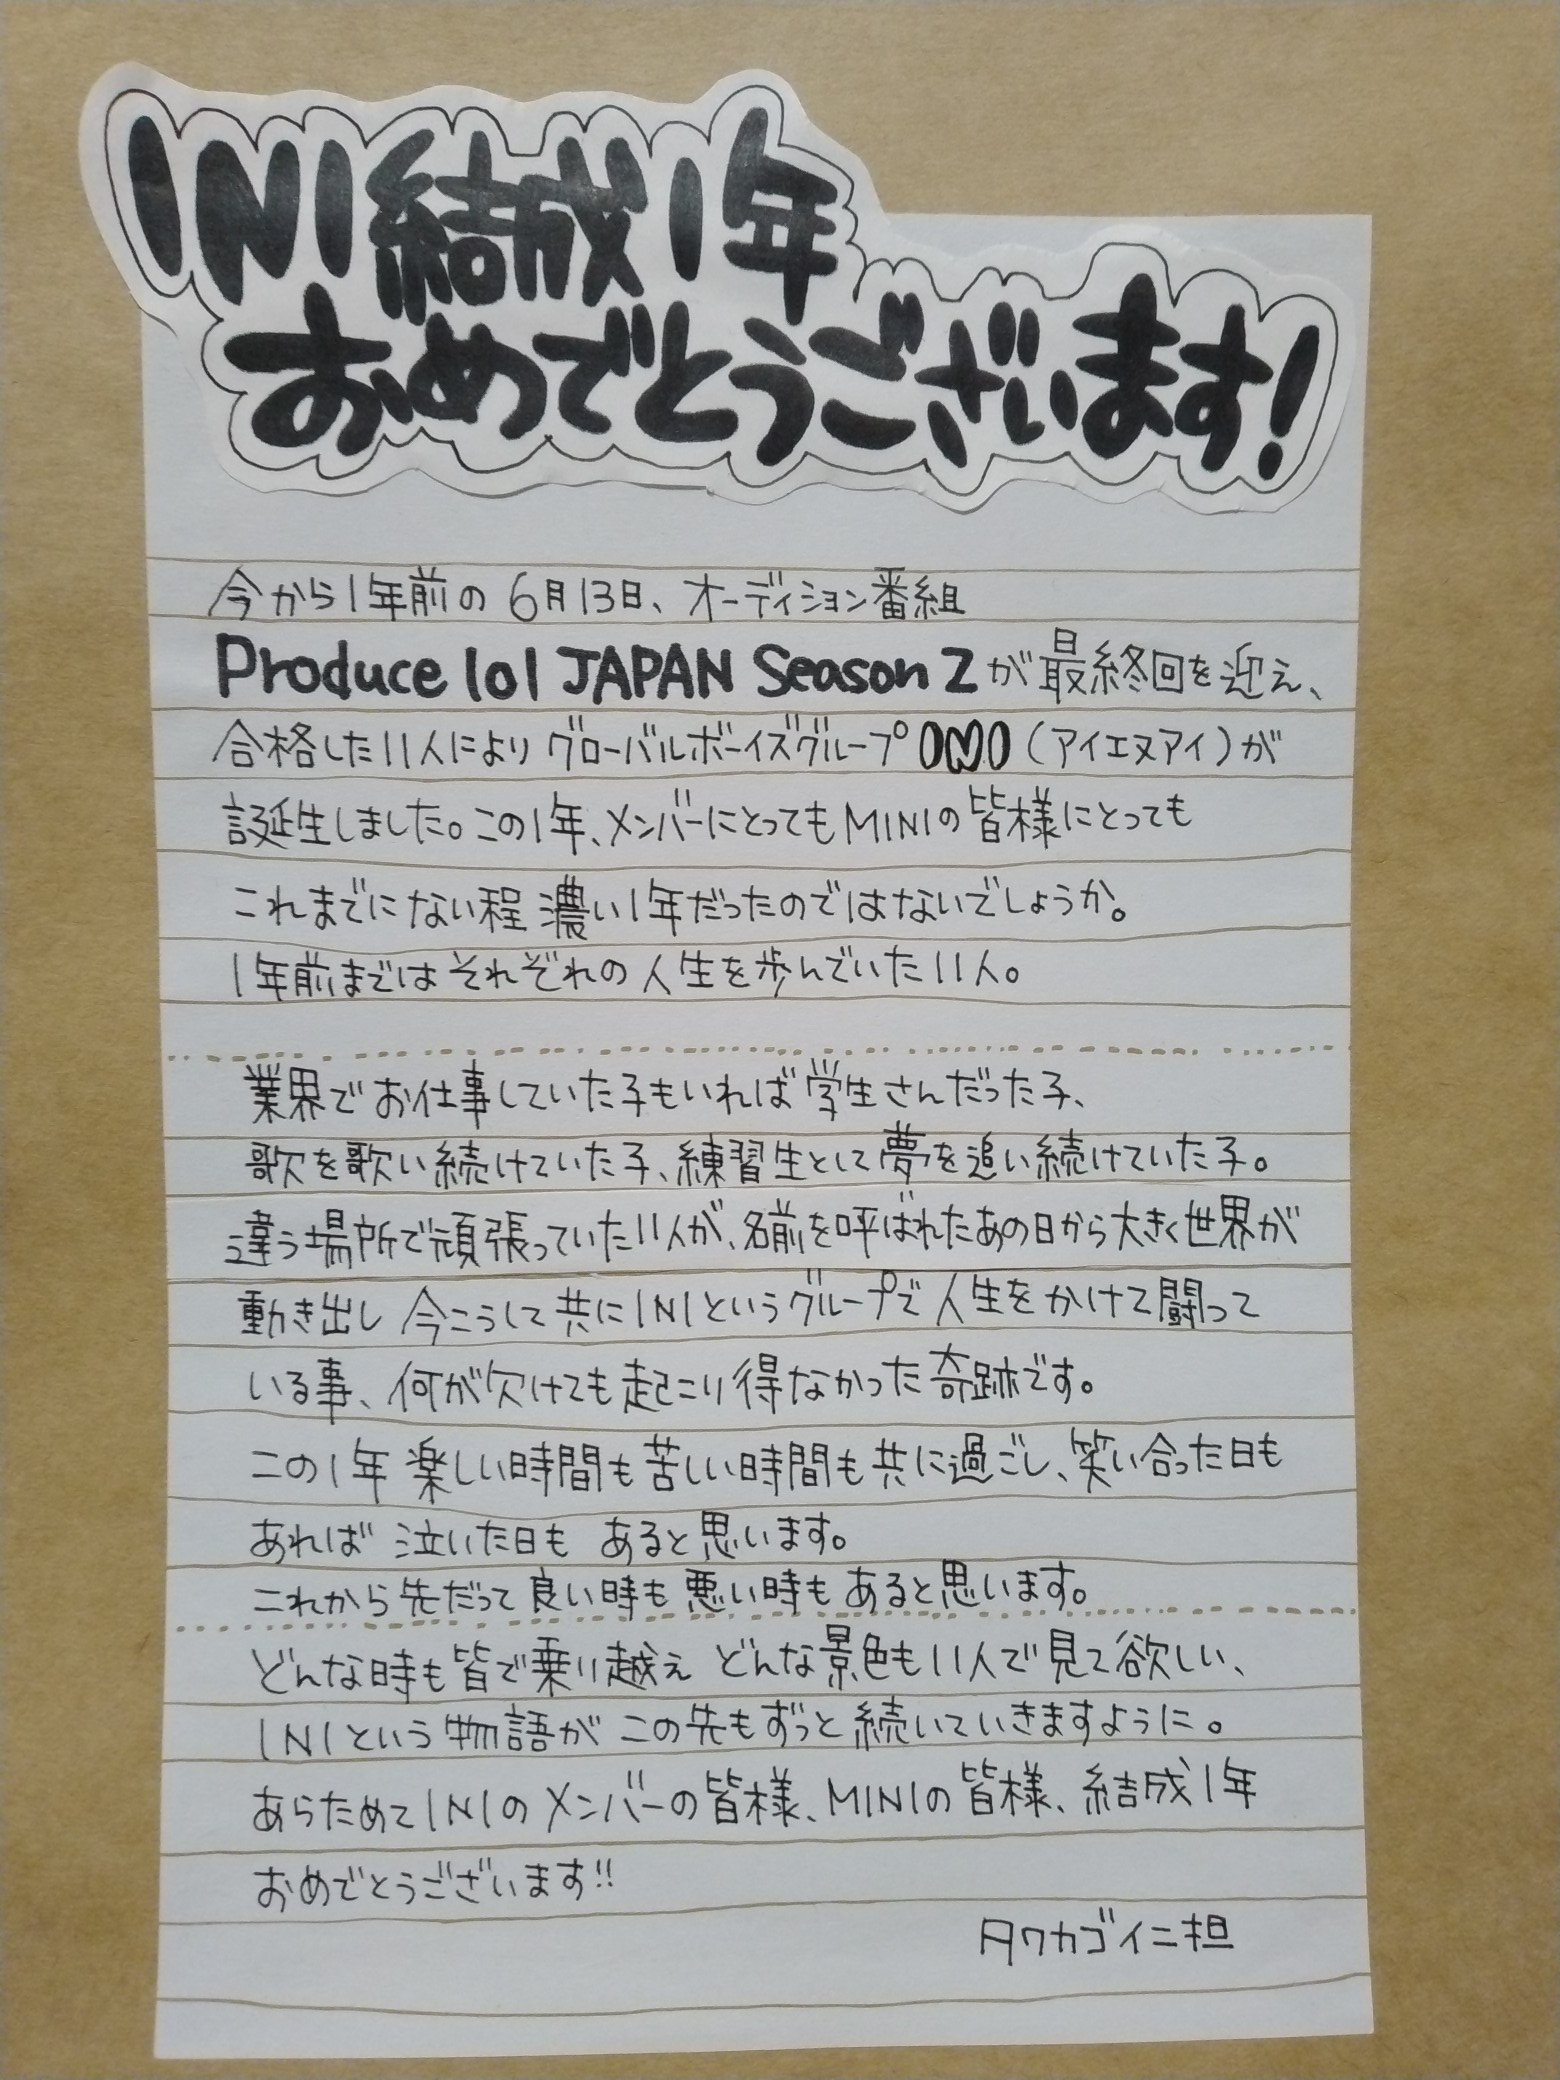 INI結成1年
おめでとうございます!
今から1年前の6月13日、オーディション番組
Produce 101 JAPAN Season 2が最終回を迎え、
合格した11人によりグローバルボーイズグループINI(アイエヌアイ)が
誕生しました。この1年、メンバーにとってもMINIの皆様にとっても
これまでにない程濃い1年だったのではないでしょうか。
1年前まではそれぞれの人生を歩んでいた11人。
業界でお仕事していた子もいれば学生さんだった子、
歌を歌い続けていた子、練習生として夢を追い続けていた子。
違う場所で頑張っていた11人が、名前を呼ばれたあの日から大きく世界が
動き出し 今こうして共にINIというグループで人生をかけて闘って
いる事、何が欠けても起こり得なかった奇跡です。
この1年 楽しい時間も苦しい時間も共に過ごし、笑い合った日も
あれば 泣いた日も あると思います。
これから先だって良い時も悪い時もあると思います。
どんな時も皆で乗り越え どんな景色も11人で見て欲しい、
INIという物語が この先もずっと続いていきますように。
あらためてINIのメンバーの皆様、MINIの皆様、結成1年
おめでとうございます!!
タワカゴイニ担